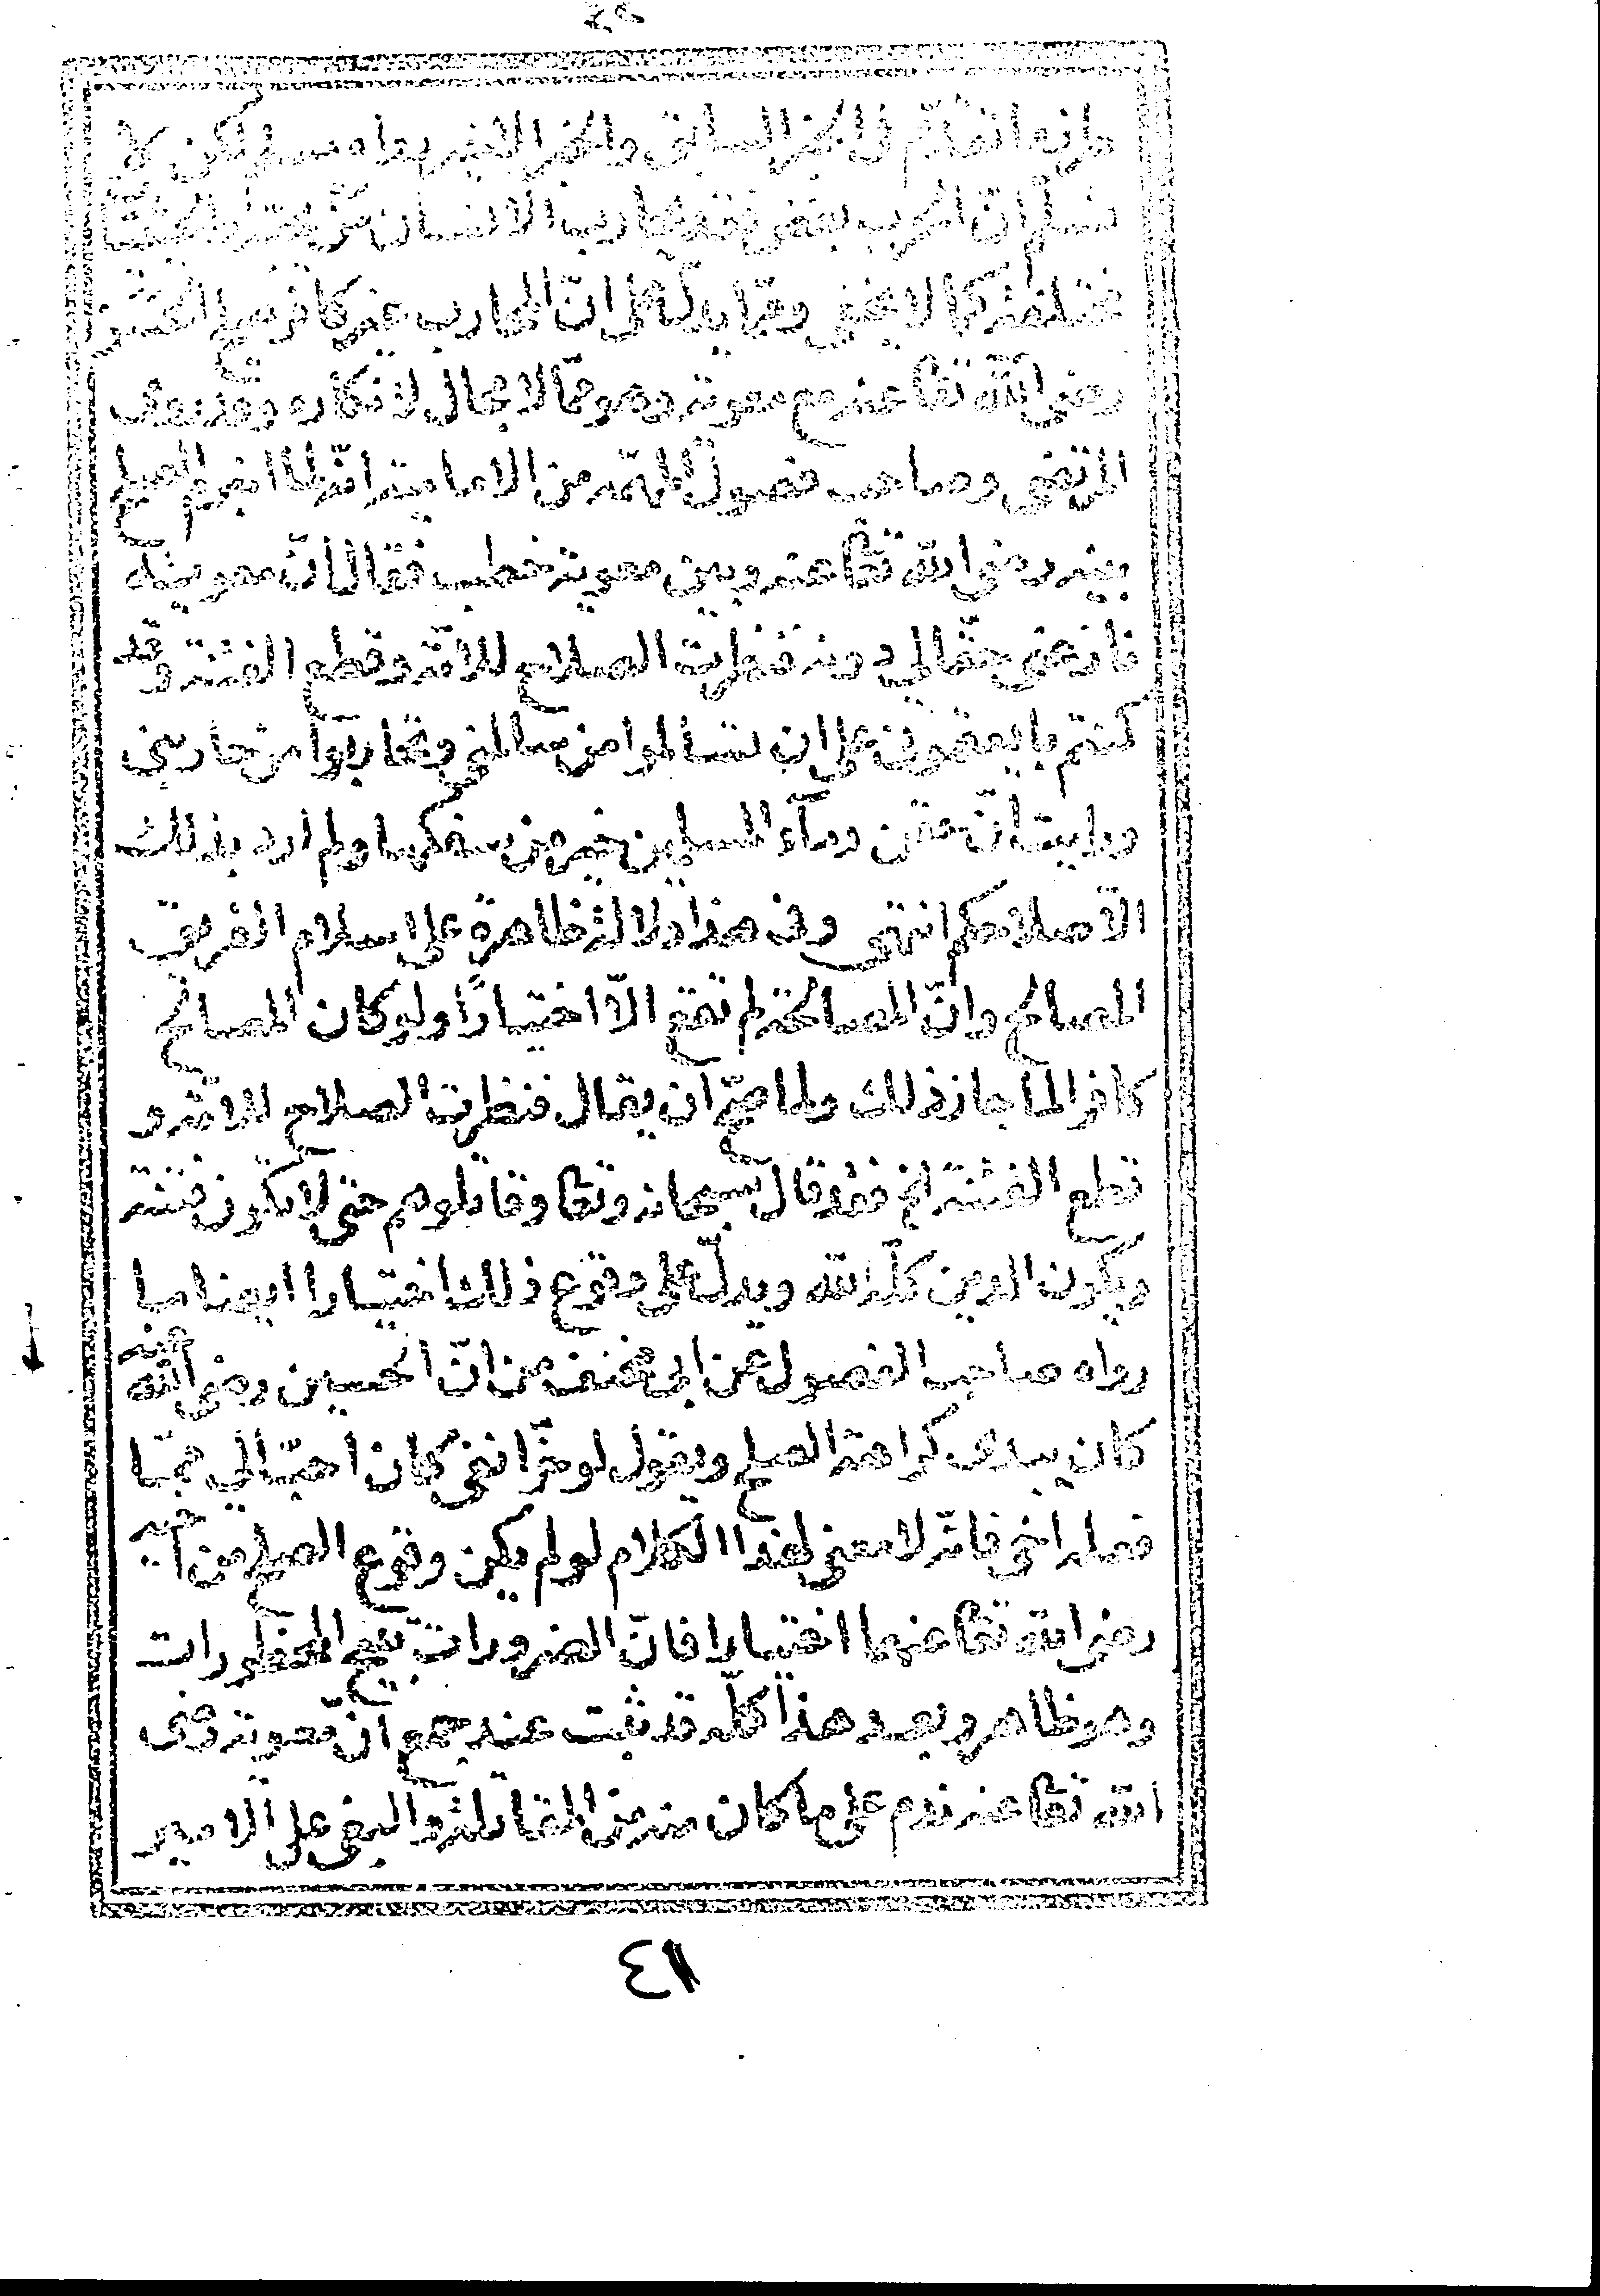 شك أن الحرب بغض فقد يحارب الإنسان من
مختلفة كما لا يخفى ومما يدل على ان المحارب غير كافر صلح الحسن
رضى الله تعا عنه مع معوية وهو مما لا مجال لانكاره وقد روى
المرتضى وصاحب فصول المهمّه من الامامية انه لما انبرم الصلح
بينه رضى الله تعا عنه وبين معوية خطب فقال انّ معوية
نازعنى حقّا لى دونه فنظرت الصلاح للامّة وقطع الفتنة وقد
كنتم بايعتمونى على ان تسالموا من سالمنى وتحاربوا من حاربنى
ورايت أنّ حقن دمآء المسلمين خير من سفكها ولم ارد بذلك
الا صلاحكم انتهى وفى هذا دلالة ظاهرة على اسلام الفريق
المصالح وانّ المصالحة لم تقع الّا اختيارًا ولو كان المصالح
كافرا لما جاز ذلك ولما صحّ ان يقال فنظرت الصلاح للامّة و
قطع الفتنة الخ فقد قال سبحانه وتعا وقاتلوهم حتى لا تكون فتنة
ويكون الدين كلّه لله ويدلّ على وقوع ذلك اختيارا ايضا ما
رواه صاحب الفصول عن ابى مخنف من انّ الحسين رضى الله عنه
كان يبدى كراهة الصلح ويقول لو جزّ انفى كان احبّ الى ممّا
فعله اخى فانّه لا معنى لهذا الكلام لو لم يكن وقوع الصلح من اخيه
رضى الله تعا عنهما اختيارا فانّ الضرورات تبيح المحظورات
وهو ظاهر وبعد هذا كلّه قد ثبت عند جمع انّ معوية رضى
الله تعا عنه ندم على ما كان منه من المقاتلة والبغى على الامير
٤١١